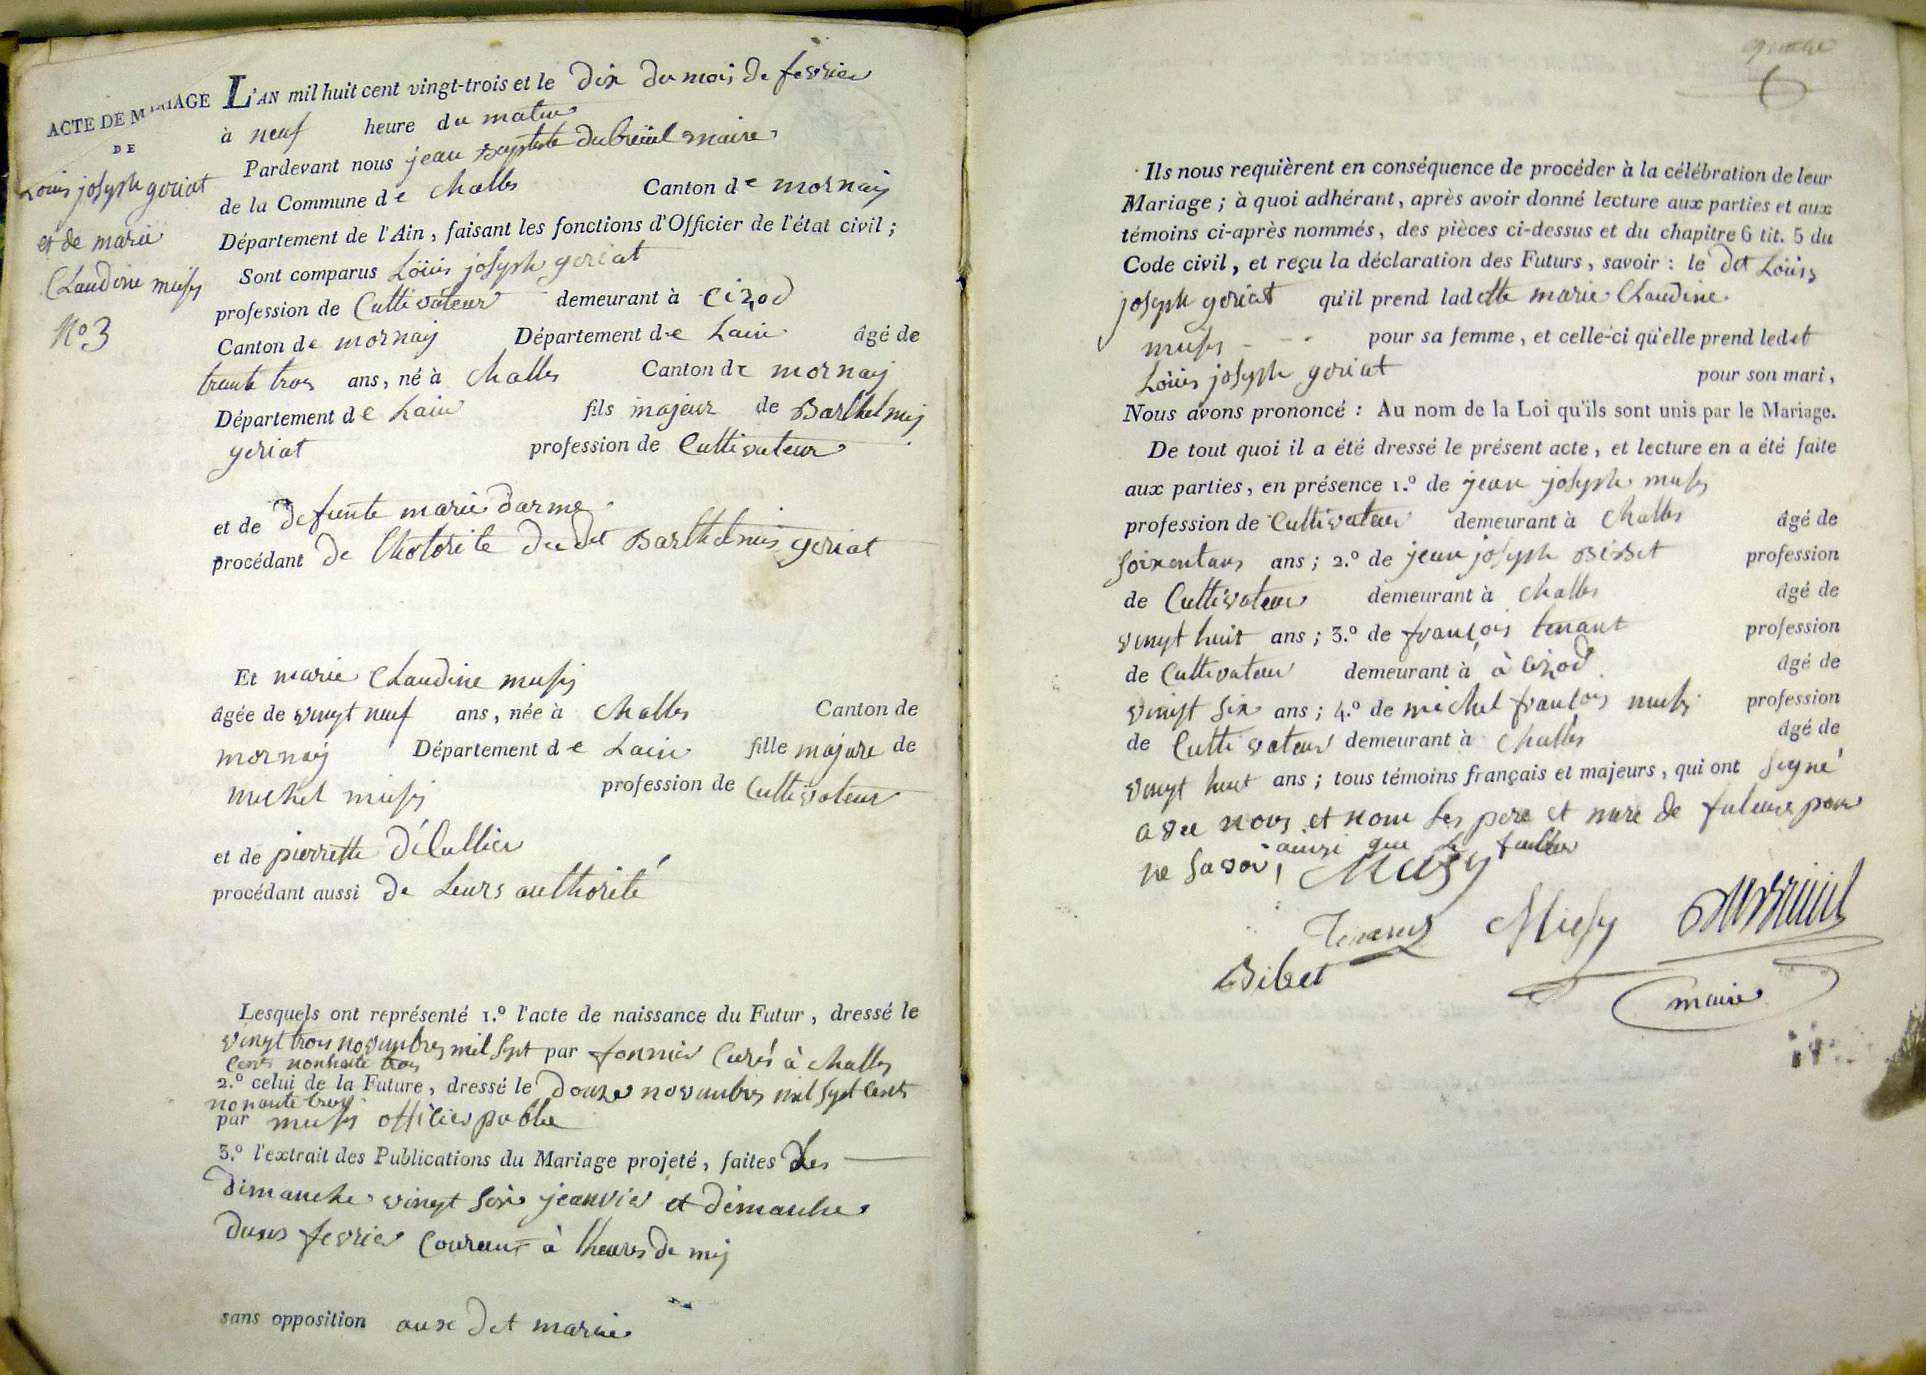 ACTE DE MARIAGE
DE
Louis joseph goriat
et de marie
Claudine musy
N.o 3
L'AN mil huit cent vingt-trois et le dix du mois de fevrier
à neuf heure du matin
Pardevant nous jean Baptiste dubreüil maire
de la Commune de Challes Canton de mornay
Département de l'Ain, faisant les fonctions d'Officier de l'état civil;
Sont comparus Loüis joseph goriat
profession de Cultivateur demeurant à Cizod
Canton de mornay Département de Lain âgé de
trente trois ans, né à Challes Canton de mornay
Département de Lain fils majeur de Barthelmy
goriat profession de Cultivateur
et de defunte marie darme
procédant de Lhotorité du dit Barthelmis goriat
Et marie Claudine musy
âgée de vingt neuf ans, née à Challes Canton de
mornay Département de Lain fille majure de
michel musy profession de Cultivateur
et de pierrette
procédant aussi de Leurs authorité
Lesquels ont représenté 1.º l'acte de naissance du Futur, dressé le
vingt trois novembres mil sept par Curés à Challes
Cents nonhante trois
2.º celui de la Future, dressé le douze novembres mil sept Cents
nonante trois
par musy officier publie
3.º l'extrait des Publications du Mariage projeté, faites des
dimanche vingt six jeanvier et dimanche
deux fevrier Courant à lheures de mis
sans opposition aux det marie
6
Ils nous requièrent en conséquence de procéder à la célébration de leur
Mariage; à quoi adhérant, après avoir donné lecture aux parties et aux
témoins ci-après nommés, des pièces ci-dessus et du chapitre 6 tit. 5 du
Code civil, et reçu la déclaration des Futurs, savoir: le det Loüis
joseph goriat qu'il prend ladette marie Claudine
musy pour sa femme, et celle-ci qu'elle prend ledet
Loüis joseph goriat pour son mari,
Nous avons prononcé: Au nom de la Loi qu'ils sont unis par le Mariage.
De tout quoi il a été dressé le présent acte, et lecture en a été faite
aux parties, en présence 1.º de jean joseph musy
profession de Cultivateur demeurant à Challes âgé de
soixentans ans; 2.º de jean joseph Bibet profession
de Cultivateur demeurant à Challes âgé de
vingt huit ans; 3.º de françois tenant profession
de Cultivateur demeurant à à Cizod âgé de
vingt six ans; 4.º de michel francois musy profession
de Cultivateur demeurant à Challes âgé de
vingt huit ans; tous témoins français et majeurs, qui ont signé
avec nous et nom les pere et mere de future pour
ainsi que le
ne savoir, Musy
Tenant Musy dubreuil
Bibet
maire